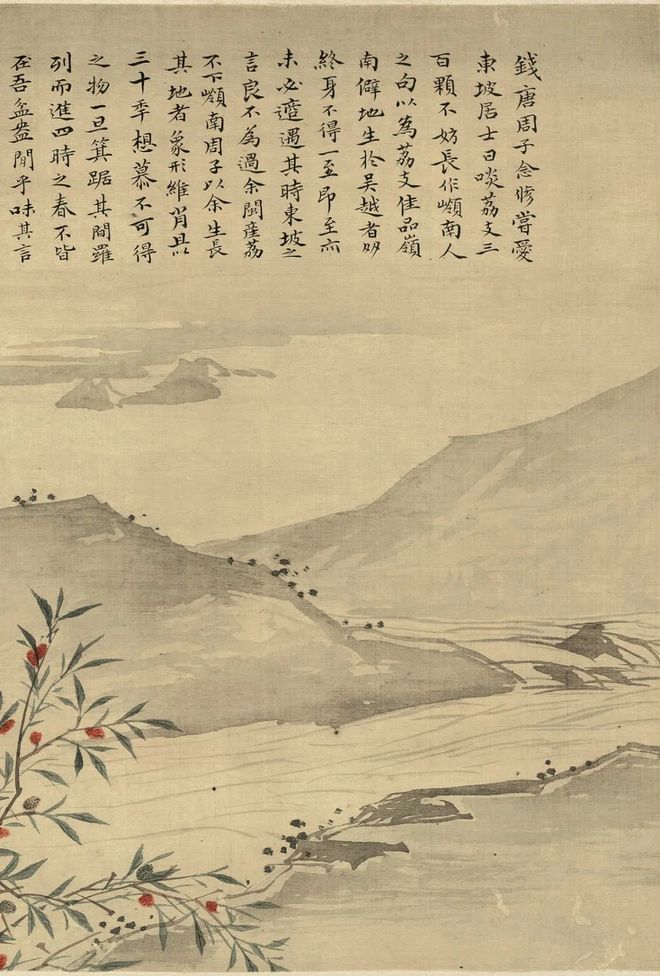 錢唐周子念修嘗愛
東坡居士日啖荔支三
百顆不妨長作嶺南人
之句以為荔支佳品嶺
南僻地生於吳越者
終身不得一至即至亦
未必適遇其時東坡之
言良不為過余閩產荔
不下嶺南周子以余生長
其地者象形維肖且以
三十秊想慕不可得
之物一旦箕踞其間羅
列而進四時之春不皆
在吾盆盎間乎味其言